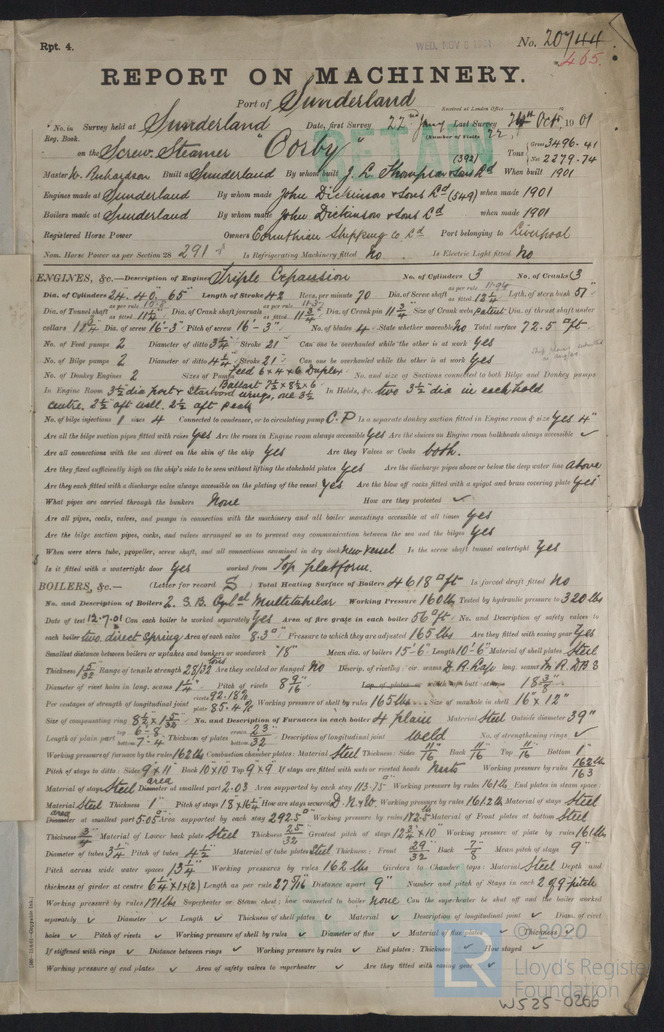 Rpt. 4.
WED. NOV 6 1901
No. 20744
465
REPORT ON MACHINERY.
Port of Sunderland
Received at London Office
No. in Survey held at Sunderland Date, first Survey 22nd Jany Last Survey 24th Octr, 1901
Reg. Book. (Number of Visits 22)
on the Screw Steamer "Corby" (392) Tons Gross 3496.41 Net 2279.74
Master W. Richardson Built at Sunderland By whom built J. L. Thompson & Sons Ld When built 1901
Engines made at Sunderland By whom made John Dickinson & Sons Ld (549) when made 1901
Boilers made at Sunderland By whom made John Dickinson & Sons Ld when made 1901
Registered Horse Power Owners Corinthian Shipping Co Ld Port belonging to Liverpool
Nom. Horse Power as per Section 28 291 Is Refrigerating Machinery fitted No Is Electric Light fitted No
ENGINES, &c.—Description of Engines Triple Expansion No. of Cylinders 3 No. of Cranks 3
Dia. of Cylinders 24. 40. 65" Length of Stroke 42 Revs. per minute 70 Dia. of Screw shaft as per rule 11.94 as fitted 12¼ Lgth. of stern bush 51"
Dia. of Tunnel shaft as fitted Dia. of Crank shaft journals as per rule as fitted 11¾ Dia. of Crank pin 11¾ Size of Crank webs patent Dia. of thrust shaft under
collars 11¾ Dia. of screw 16'-3" Pitch of screw 16'-3" No. of blades 4 State whether moveable No Total surface 72.5 □ft
No. of Feed pumps 2 Diameter of ditto 3¾ Stroke 21 Can one be overhauled while the other is at work Yes
No. of Bilge pumps 2 Diameter of ditto 4¼ Stroke 21 Can one be overhauled while the other is at work Yes
No. of Donkey Engines 2 Sizes of Pumps Feed 6 x 4 x 6 Duplex No. and size of Suctions connected to both Bilge and Donkey pumps
Ballast 7½ x 8½ x 6
In Engine Room 3½ dia port & starboard wings, one 3½ In Holds, &c. two 3½ dia in each hold
centre. 2½ aft well. 2½ aft peak
No. of bilge injections 1 sizes 4 Connected to condenser, or to circulating pump C.P Is a separate donkey suction fitted in Engine room & size Yes 4"
Are all the bilge suction pipes fitted with roses Yes Are the roses in Engine room always accessible Yes Are the sluices on Engine room bulkheads always accessible ✓
Are all connections with the sea direct on the skin of the ship Yes Are they Valves or Cocks both.
Are they fixed sufficiently high on the ship's side to be seen without lifting the stokehold plates Yes Are the discharge pipes above or below the deep water line above
Are they each fitted with a discharge valve always accessible on the plating of the vessel Yes Are the blow off cocks fitted with a spigot and brass covering plate Yes
What pipes are carried through the bunkers None How are they protected ✓
Are all pipes, cocks, valves, and pumps in connection with the machinery and all boiler mountings accessible at all times Yes
Are the bilge suction pipes, cocks, and valves arranged so as to prevent any communication between the sea and the bilges Yes
When were stern tube, propeller, screw shaft, and all connections examined in dry dock New vessel Is the screw shaft tunnel watertight Yes
Is it fitted with a watertight door Yes worked from Top platform.
BOILERS, &c.— (Letter for record S) Total Heating Surface of Boilers 4618 □ft Is forced draft fitted No
No. and Description of Boilers 2. S.B. Cylal Multitubular Working Pressure 160 lbs Tested by hydraulic pressure to 320 lbs
Date of test 12.7.01 Can each boiler be worked separately Yes Area of fire grate in each boiler 56 □ft No. and Description of safety valves to
each boiler two direct spring Area of each valve 8.3□" Pressure to which they are adjusted 165 lbs Are they fitted with easing gear Yes
Smallest distance between boilers or uptakes and bunkers or woodwork 18" Mean dia. of boilers 15'-6" Length 10'-6" Material of shell plates Steel
Thickness 1 5/32 Range of tensile strength 28/32 tons Are they welded or flanged No Descrip. of riveting: cir. seams D.R. Lap long. seams D.B.S
Diameter of rivet holes in long. seams 1¼ Pitch of rivets 8 9/16 Lap of plates or width of butt straps 18⅜
Per centages of strength of longitudinal joint rivets 92.18% plate 85.4% Working pressure of shell by rules 165 lbs Size of manhole in shell 16" x 12"
Size of compensating ring 8½ x 1 5/32 No. and Description of Furnaces in each boiler 4 plain Material Steel Outside diameter 39"
Length of plain part top 6'-8 bottom 7'-4 Thickness of plates crown 23/32 bottom Description of longitudinal joint Weld No. of strengthening rings ✓
Working pressure of furnace by the rules 162 lbs Combustion chamber plates: Material Steel Thickness: Sides 11/16 Back 11/16 Top 11/16 Bottom 1"
Pitch of stays to ditto: Sides 9" x 11" Back 10 x 10 Top 9 x 9" If stays are fitted with nuts or riveted heads Nuts Working pressure by rules 162 lb 163
Material of stays Steel area Diameter at smallest part 2.03 Area supported by each stay 113.75 Working pressure by rules 161 lb End plates in steam space:
Material Steel Thickness 1" Pitch of stays 18 x 16¼ How are stays secured D.N.&W. Working pressure by rules 161.2 lb Material of stays Steel
area Diameter at smallest part 5.05 Area supported by each stay 292.5□" Working pressure by rules 172.5 lb Material of Front plates at bottom Steel
Thickness ¾ Material of Lower back plate Steel Thickness 25/32 Greatest pitch of stays 12¾ x 10" Working pressure of plate by rules 161 lbs
Diameter of tubes 3¼ Pitch of tubes 4½ Material of tube plates Steel Thickness: Front 29/32 Back 7/8 Mean pitch of stays 9"
Pitch across wide water spaces 13¼" Working pressures by rules 162 lbs Girders to Chamber tops: Material Steel Depth and
thickness of girder at centre 6¼ x 1 x (2) Length as per rule 27 5/16 Distance apart 9" Number and pitch of Stays in each 2 @ 9 pitch
Working pressure by rules 171 lbs Superheater or Steam chest; how connected to boiler None Can the superheater be shut off and the boiler worked
separately ✓ Diameter ✓ Length ✓ Thickness of shell plates ✓ Material ✓ Description of longitudinal joint ✓ Diam. of rivet
holes ✓ Pitch of rivets ✓ Working pressure of shell by rules ✓ Diameter of flue ✓ Material of flue plates ✓ Thickness ✓
If stiffened with rings ✓ Distance between rings ✓ Working pressure by rules ✓ End plates: Thickness ✓ How stayed ✓
Working pressure of end plates ✓ Area of safety valves to superheater ✓ Are they fitted with easing gear ✓
© 2020
Lloyd's Register
Foundation
W525-0266